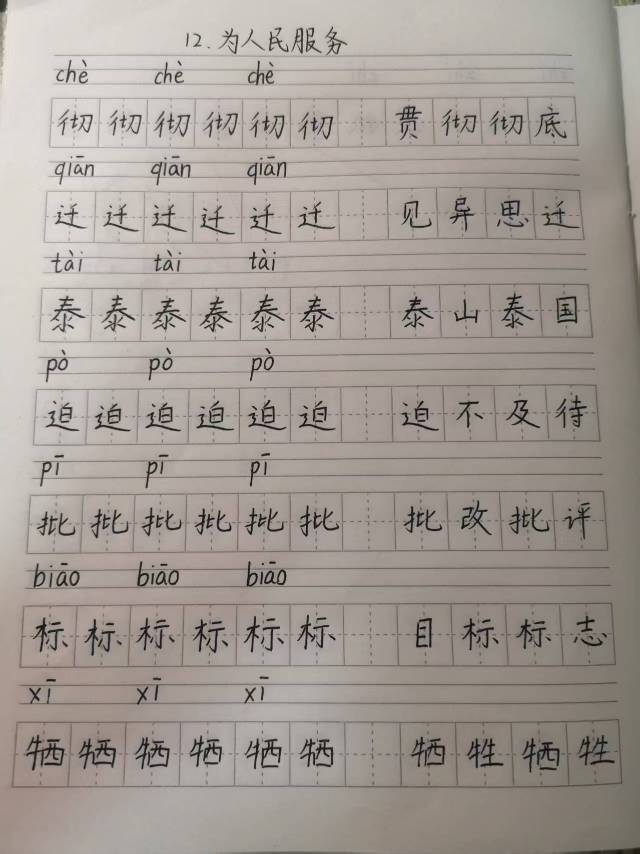 12.为人民服务
chè chè chè
彻彻彻彻彻彻 贯彻彻底
qiān qiān qiān
迁迁迁迁迁迁 见异思迁
tài tài tài
泰泰泰泰泰泰 泰山泰国
pò pò pò
迫迫迫迫迫迫 迫不及待
pī pī pī
批批批批批批 批改批评
biāo biāo biāo
标标标标标标 目标标志
xī xī xī
牺牺牺牺牺牺 牺牲牺牲